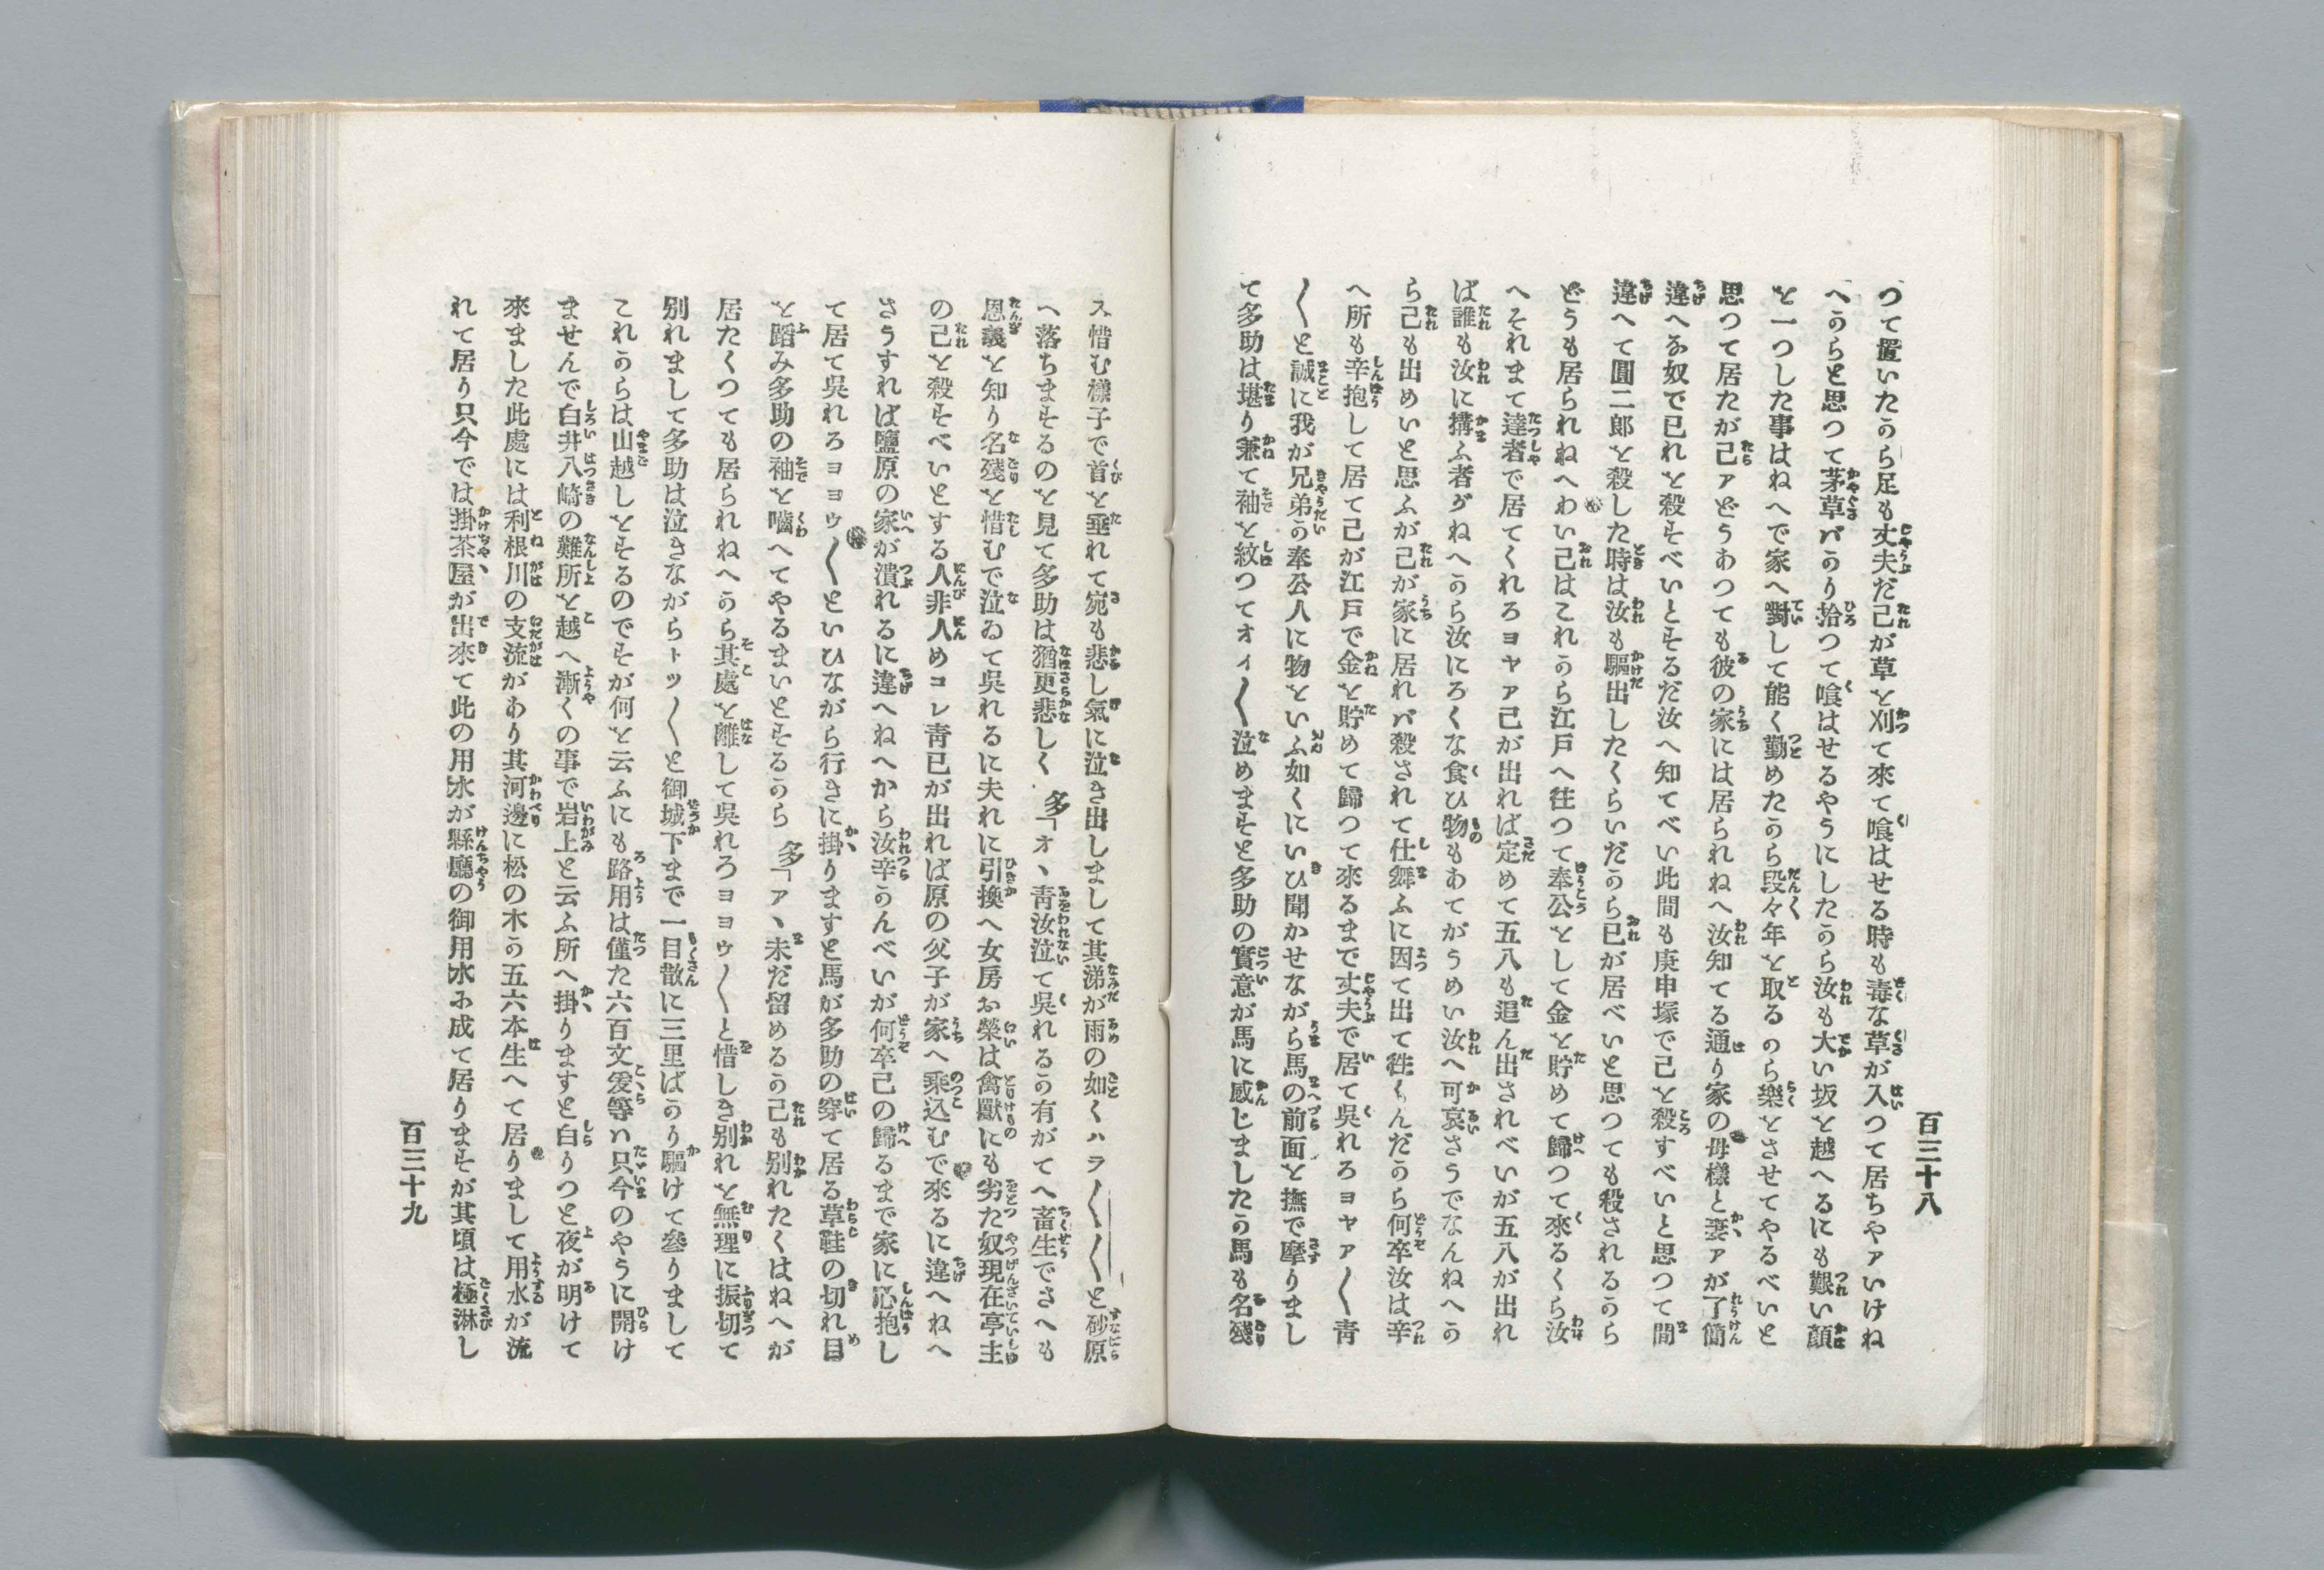 百三十八
つて置いたから足も丈夫だ己が草を刈て來て喰はせる時も毒な草が入つて居ちやアいけね
へからと思つて茅草バかり拾つて喰はせるやうにしたから汝も大い坂を越へるにも艱い顔
を一つした事はねへで家へ對して能く勤めたから段々年を取るから樂をさせてやるべいと
思つて居たが己アどうあつても彼の家には居られねへ汝知てる通り家の母樣と妻アが了簡
違へな奴で己れを殺すべいとするだ汝へ知てべい此間も庚申塚で己を殺すべいと思つて間
違へて圓二郎を殺した時は汝も驅出したくらいだから己が居べいと思つても殺されるから
どうも居られねへわい己はこれから江戸へ往つて奉公をして金を貯めて歸つて來るくら汝
へそれまて達者で居てくれろヨヤア己が出れば定めて五八も追ん出されべいが五八が出れ
ば誰も汝に搆ふ者がねへから汝にろくな食ひ物もあてがうめい汝へ可哀さうでなんねへか
ら己も出めいと思ふが己が家に居れバ殺されて仕舞ふに因て出て徃くんだから何卒汝は辛
へ所も辛抱して居て己が江戸で金を貯めて歸つて來るまで丈夫で居て呉れろヨヤア〱靑
〱と誠に我が兄弟か奉公人に物をいふ如くにいひ聞かせながら馬の前面を撫で摩りまし
て多助は堪り兼て袖を絞つてオイ〱泣めますと多助の實意が馬に感じましたか馬も名殘
ス惜む樣子で首を垂れて宛も悲し氣に泣き出しまして其涕が雨の如くハラ〱〱と砂原
へ落ちまするのを見て多助は猶更悲しく 多「オヽ靑汝泣て呉れるか有がてへ畜生でさへも
恩義を知り名殘を惜むで泣ゐて呉れるに夫れに引換へ女房お榮は禽獸にも劣た奴現在亭主
の己を殺すべいとする人非人めコレ靑已が出れば原の父子が家へ乘込むで來るに違へねへ
さうすれば鹽原の家が潰れるに違へねへから汝辛かんべいが何卒己の歸るまで家に応抱し
て居て呉れろヨヨウ〱といひながら行きに掛りますと馬が多助の穿て居る草鞋の切れ目
を蹈み多助の袖を嚙へてやるまいとするから 多「アヽ未だ留めるか己も別れたくはねへが
居たくつても居られねへから其處を離して呉れろヨヨウ〱と惜しき別れを無理に振切て
別れまして多助は泣きながらトツ〱と御城下まで一目散に三里ばかり驅けて參りまして
これからは山越しをするのですが何を云ふにも路用は僅た六百文爰等ハ只今のやうに開け
ませんで白井八崎の難所を越へ漸くの事で岩上と云ふ所へ掛りますと白りつと夜が明けて
來ました此處には利根川の支流があり其河邊に松の木か五六本生へて居りまして用水が流
れて居り只今では掛茶屋が出來て此の用水が縣廳の御用水ホ成て居りますが其頃は極淋し
百三十九